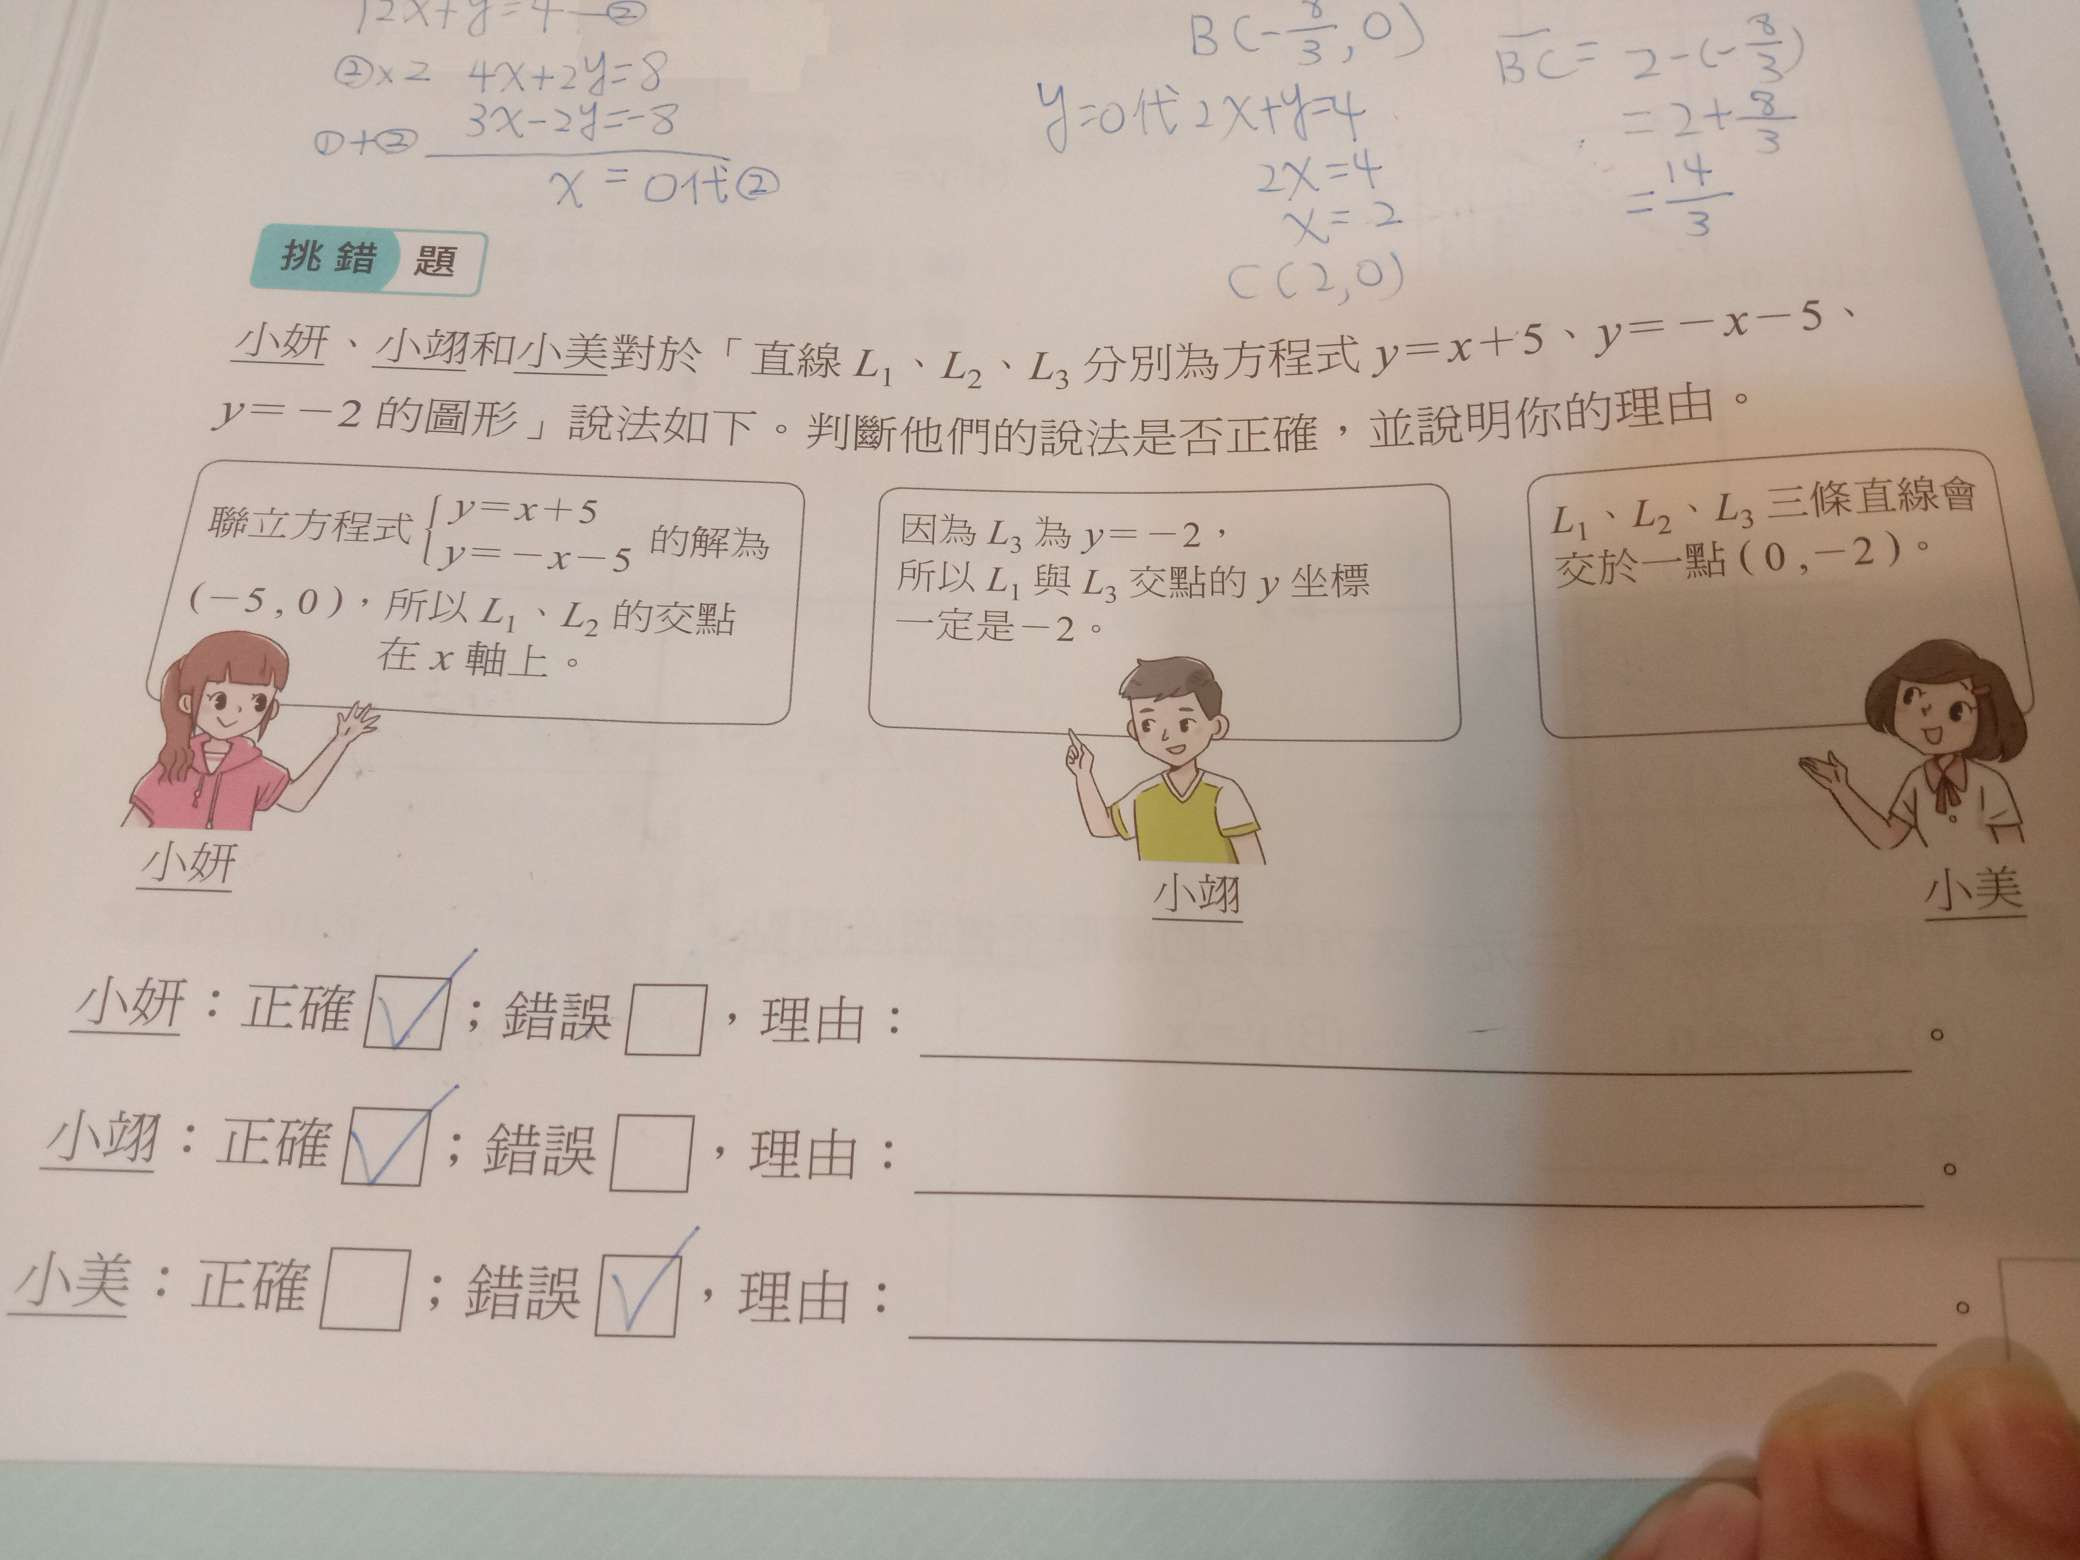 2x+y=4—②
②x2 4x+2y=8
①+② 3x-2y=-8
x=0代②
B(-8/3,0)
y=0代2x+y=4
2x=4
x=2
C(2,0)
BC=2-(-8/3)
=2+8/3
=14/3
挑錯題
小妍、小翊和小美對於「直線L₁、L₂、L₃分別為方程式y=x+5、y=-x-5、
y=-2的圖形」說法如下。判斷他們的說法是否正確,並說明你的理由。
聯立方程式{y=x+5
y=-x-5 的解為
(-5,0),所以L₁、L₂的交點
在x軸上。
小妍
因為L₃為y=-2,
所以L₁與L₃交點的y坐標
一定是-2。
小翊
L₁、L₂、L₃三條直線會
交於一點(0,-2)。
小美
小妍:正確☑;錯誤□,理由: 。
小翊:正確☑;錯誤□,理由: 。
小美:正確□;錯誤☑,理由: 。